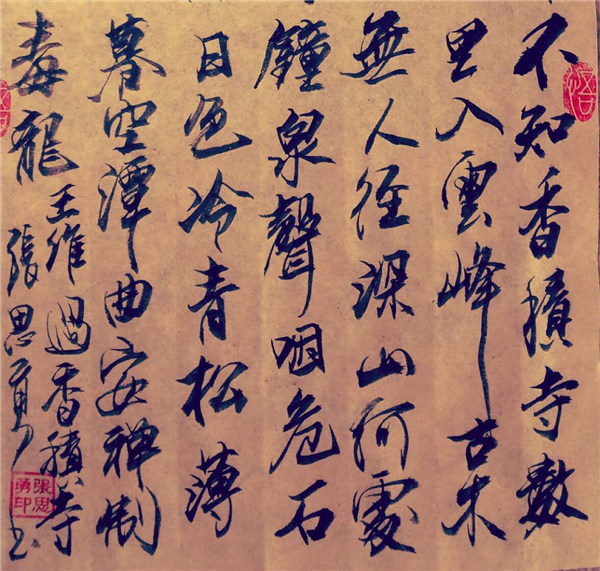 不知香積寺數
里入雲峰古木
無人徑深山何處
鐘泉聲咽危石
日色冷青松薄
暮空潭曲安禅制
毒龍
王維過香積寺
張思勇书
張思勇印